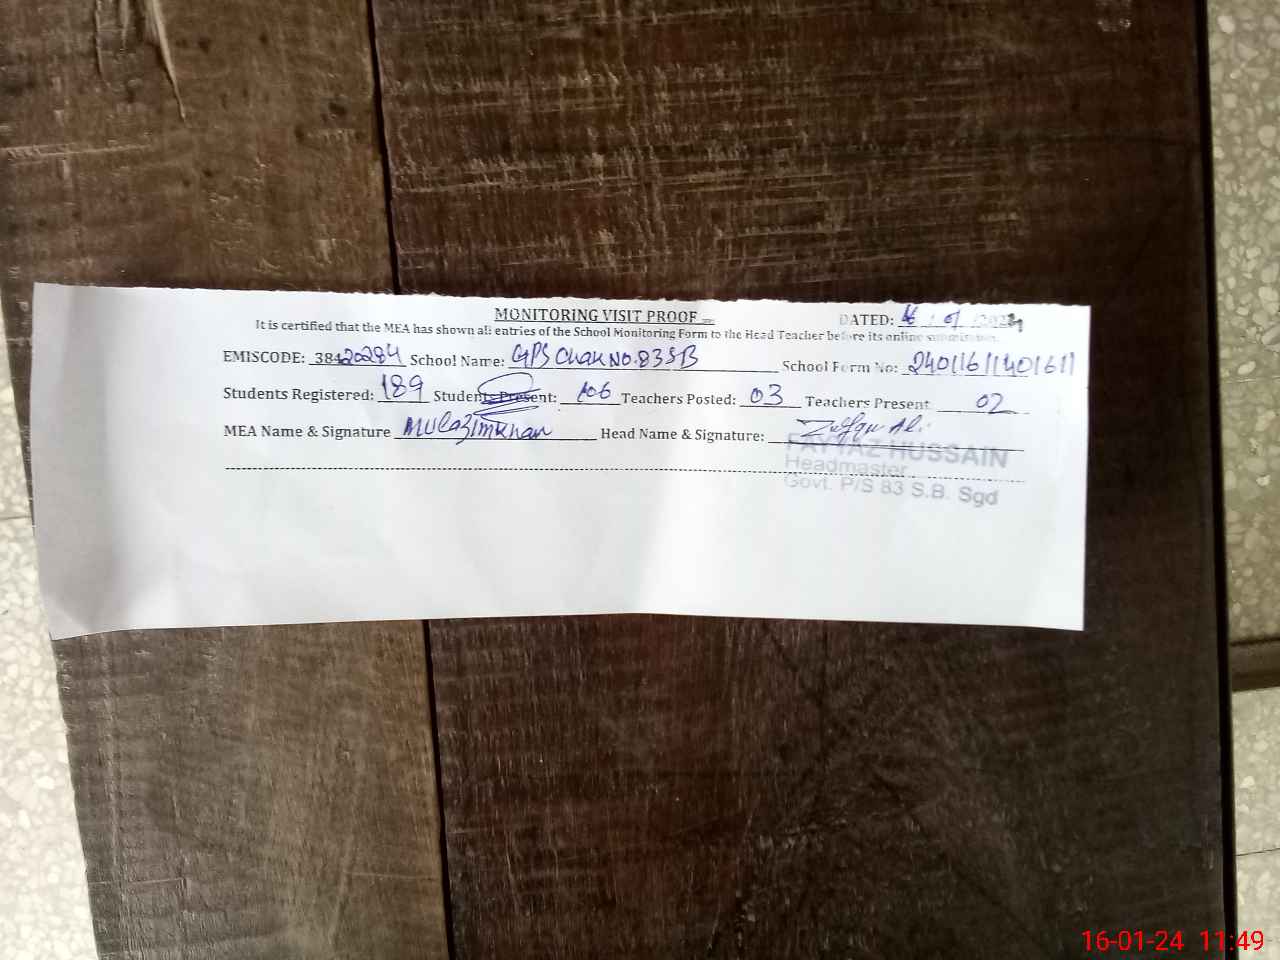 MONITORING VISIT PROOF
DATED: 16 / 01 / 2024
It is certified that the MEA has shown all entries of the School Monitoring Form to the Head Teacher before its online submission.
EMISCODE: 38420284 School Name: GPS Chak No. 83SB School Form No: 2401161140161
Students Registered: 189 Students Present: 106 Teachers Posted: 03 Teachers Present 02
MEA Name & Signature Mulazim Khan Head Name & Signature: Zulfqar Ali
FAYYAZ HUSSAIN
Headmaster
Govt. P/S 83 S.B. Sgd
16-01-24 11:49